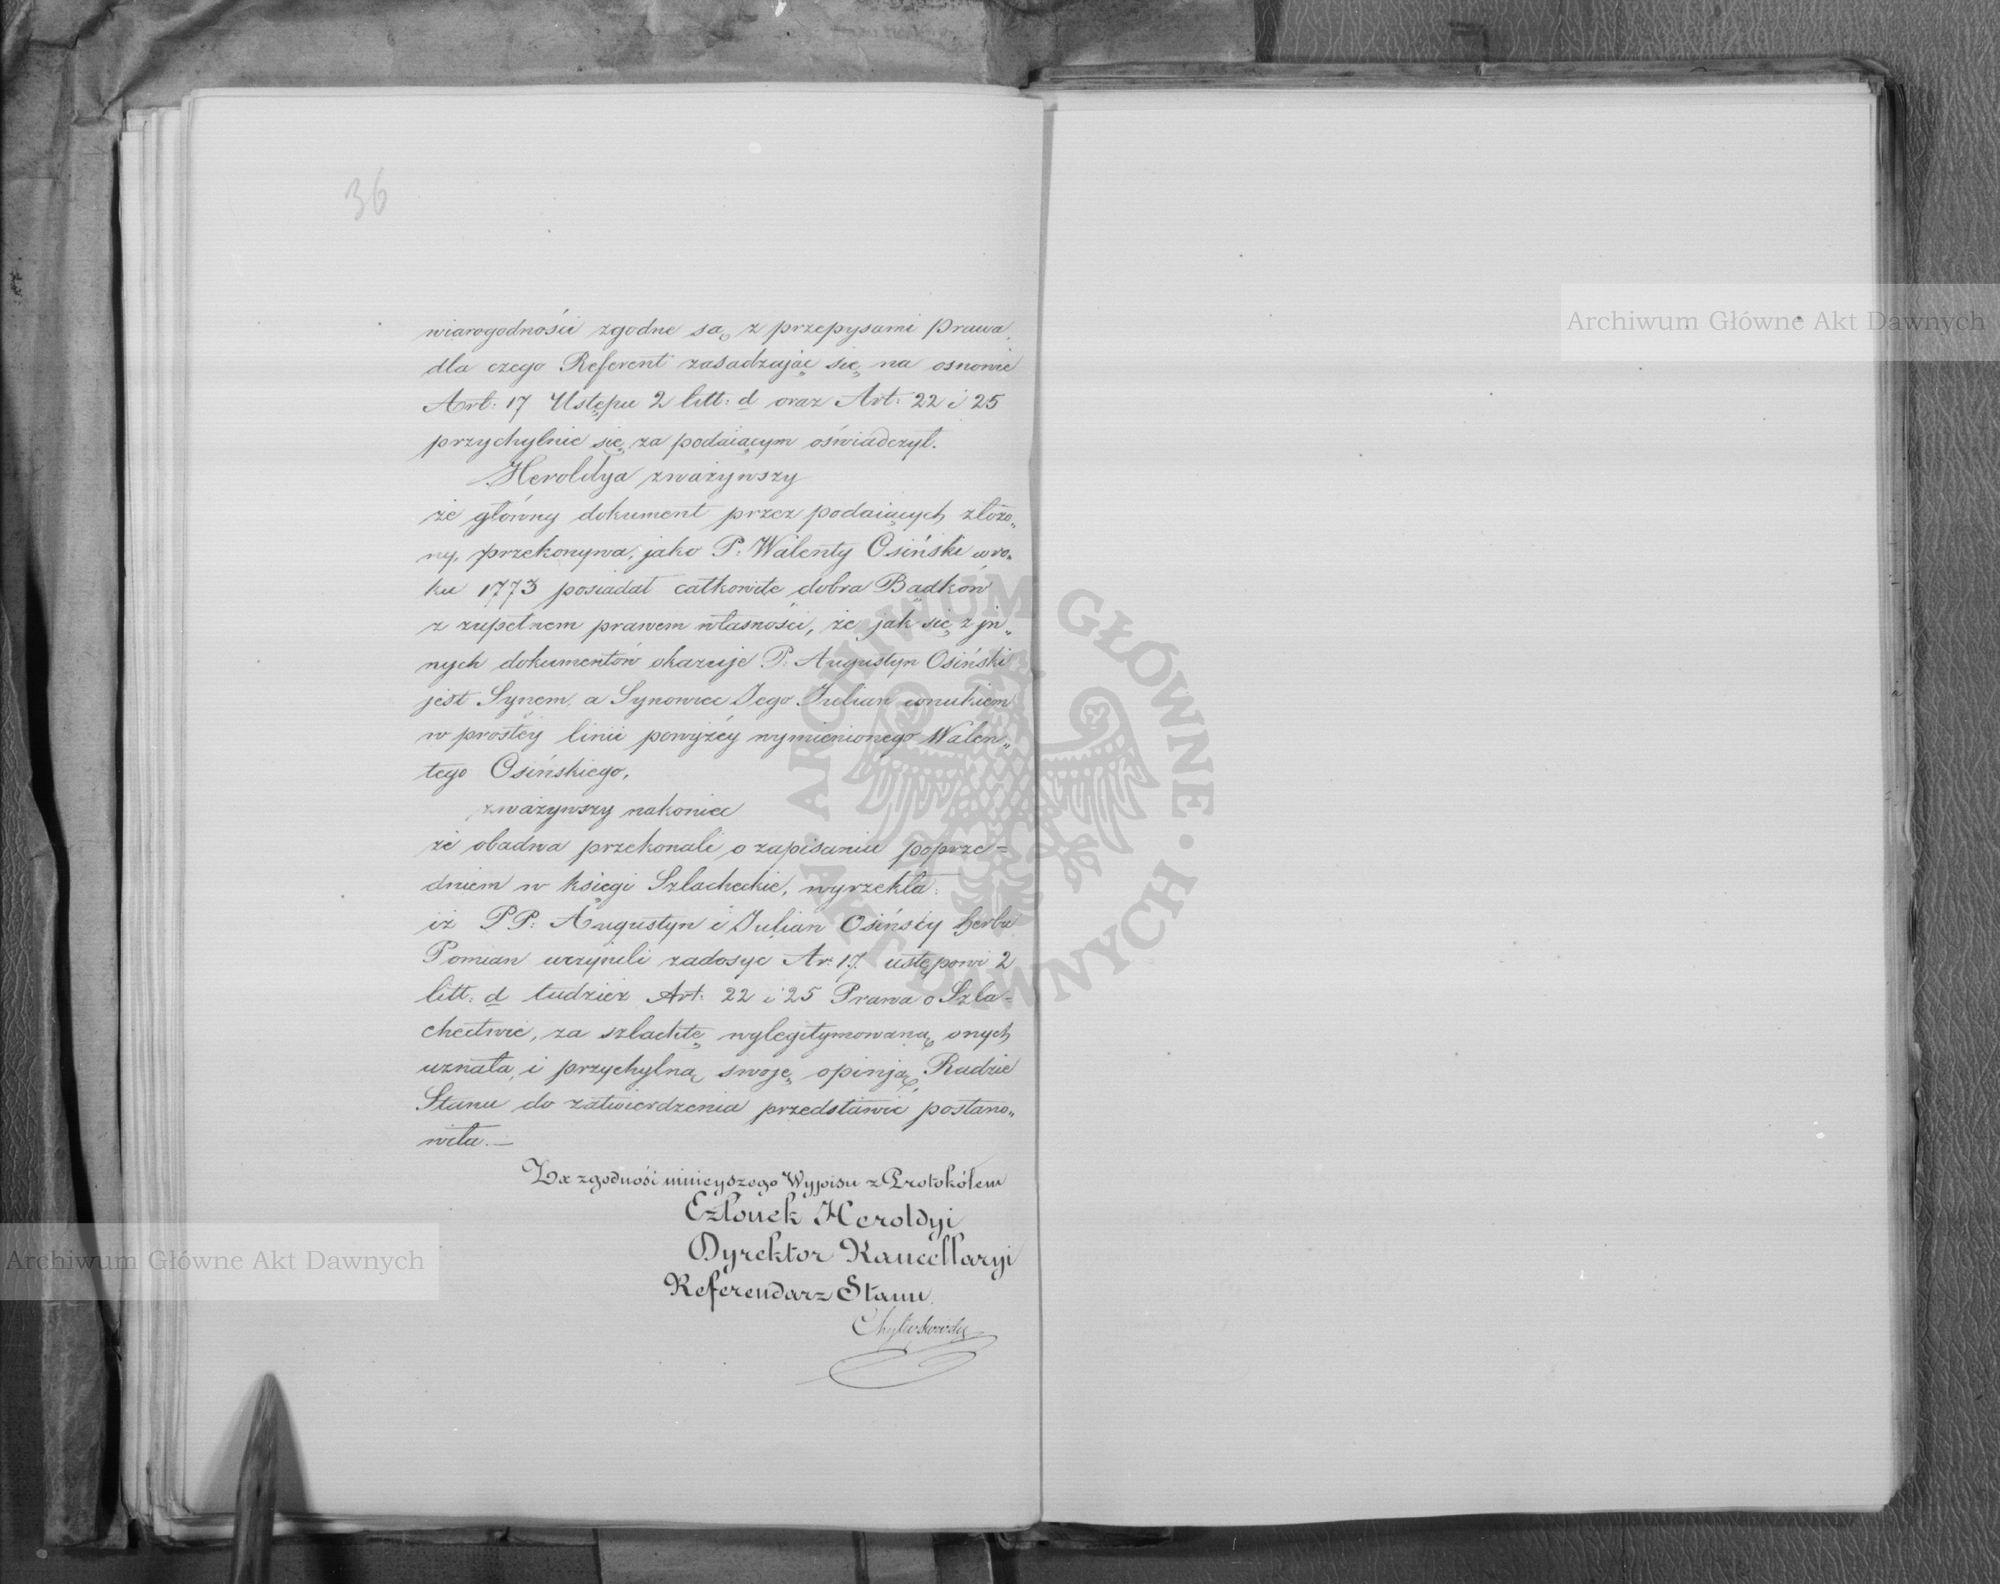 36
wiarogodności zgodne są z przepysami Prawa,
dla czego Referent zasadzając się na osnowie
Art: 17 Ustępu 2 litt: d oraz Art: 22 i 25
przychylnie się za podaiącym oświadczył.
Heroldya zważywszy
że główny dokument przez podaiących złożo„
ny, przekonywa, jako P: Walenty Osiński w ro„
ku 1773 posiadał całkowite dobra Bądków
z zupełnem prawem własności, że jak się z jn„
nych dokumentów okazuje P: Augustyn Osiński
jest Synem, a Synowiec Jego Julian wnukiem
w prostéy linii powyżéy wymienionego Walen„
tego Osińskiego,
zważywszy nakoniec
że obadwa przekonali o zapisaniu poprze=
dniem w księgi Szlacheckie, wyrzekła:
iż PP: Augustyn i Julian Osińscy herbu
Pomian uczynili zadosyc Ar: 17. ustępowi 2
litt: d tudzież Art: 22 i 25 Prawa o Szla=
chectwie, za szlachtę wylegitymowaną onych
uznała, i przychylną swoję opinją Radzie
Stanu do zatwierdzenia przedstawić postano„
wiła.—
Za zgodność ninieyszego Wypisu z Protokółem
Członek Heroldyi
Dyrektor Kancellaryi
Referendarz Stanu
Archiwum Główne Akt Dawnych
Archiwum Główne Akt Dawnych
ARCHIWUM GŁÓWNE AKT DAWNYCH